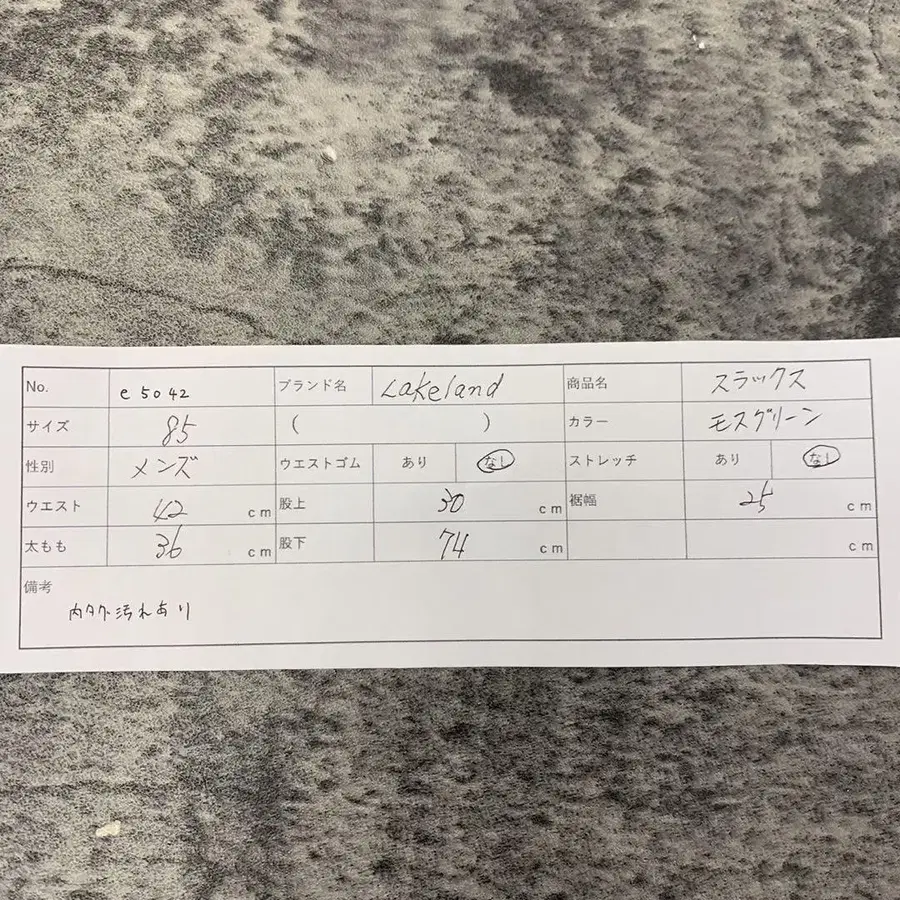 No. e5042 ブランド名 Lakeland 商品名 スラックス
サイズ 85 ( ) カラー モスグリーン
性別 メンズ ウエストゴム あり なし ストレッチ あり なし
ウエスト 42 cm 股上 30 cm 裾幅 25 cm
太もも 36 cm 股下 74 cm cm
備考
内タグ汚れあり